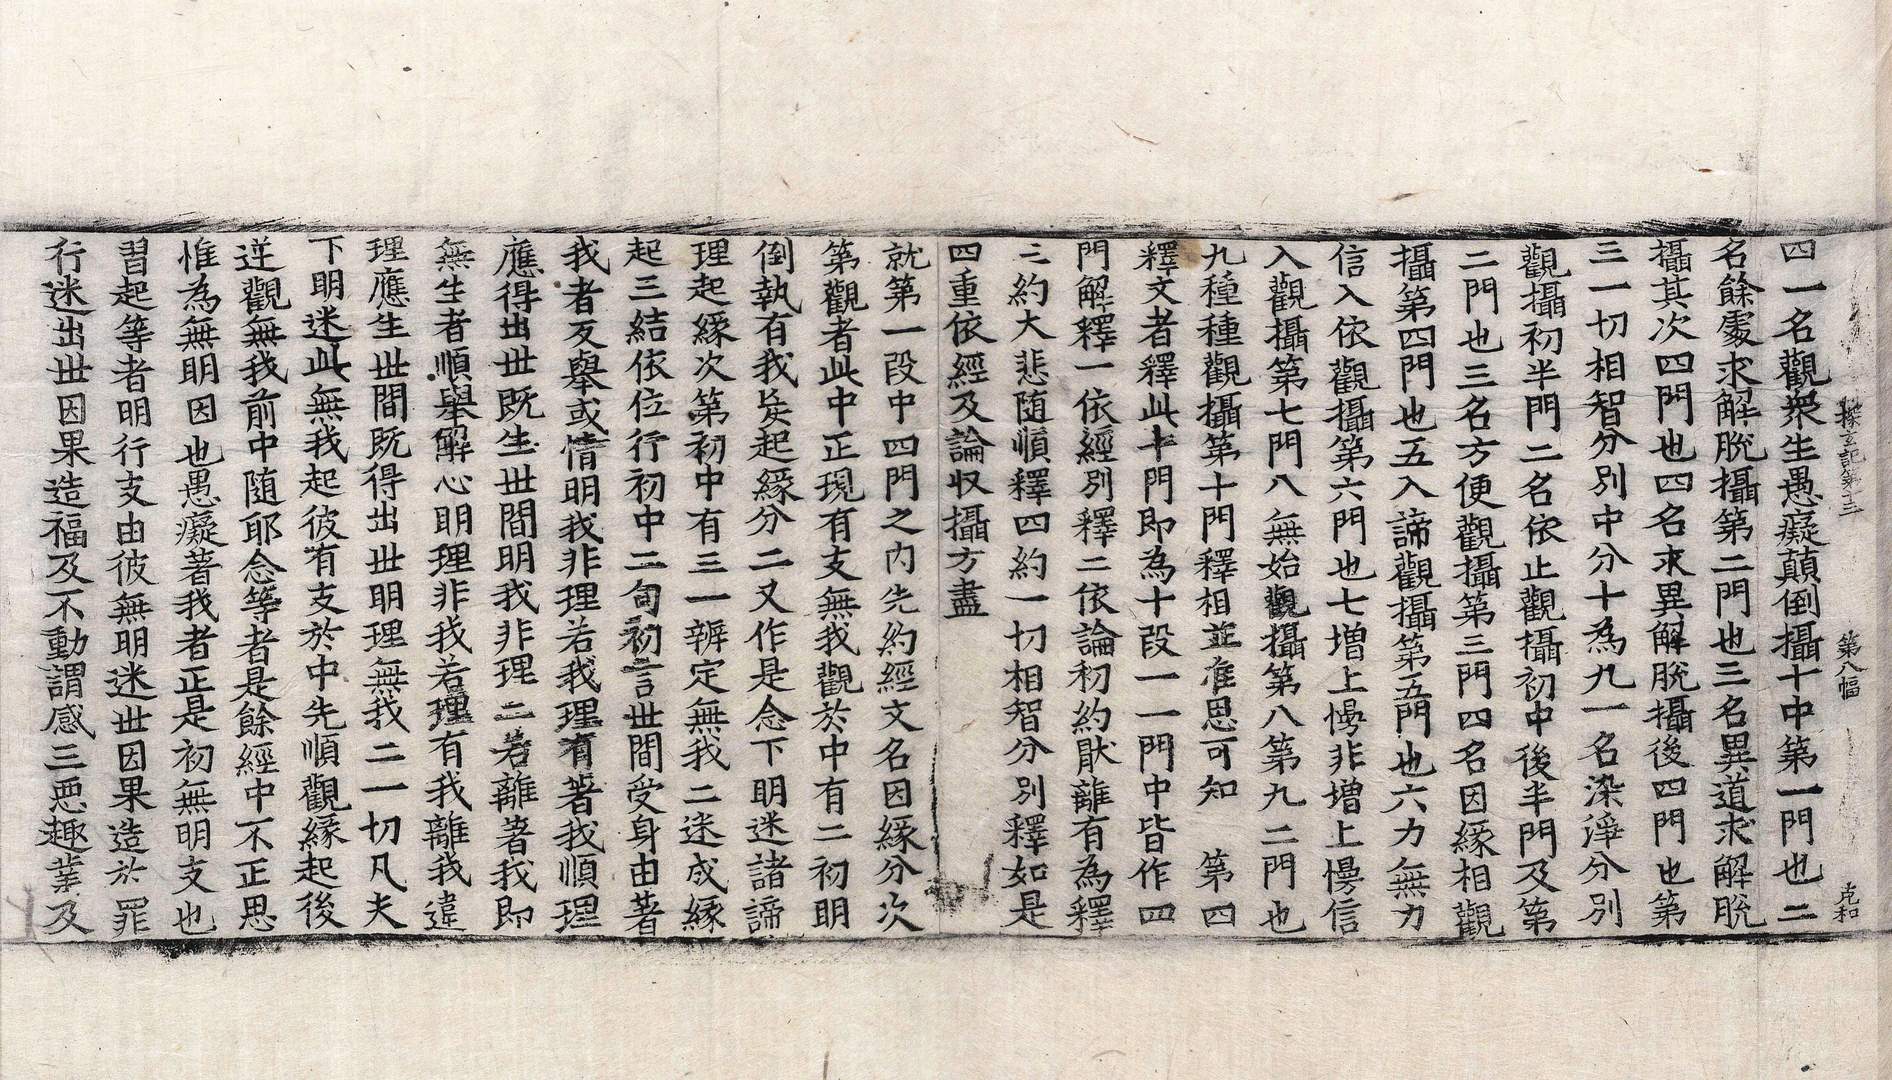 探玄記第十三　第八幅　克和
四一名觀衆生愚癡顛倒攝十中第一門也二
名餘處求解脫攝第二門也三名異道求解脫
攝其次四門也四名求異解脫攝後四門也第
三一切相智分別中分十為九一名染淨分別
觀攝初半門二名依止觀攝初中後半門及第
二門也三名方便觀攝第三門四名因緣相觀
攝第四門也五入諦觀攝第五門也六力無力
信入依觀攝第六門也七增上慢非增上慢信
入觀攝第七門八無始觀攝第八第九二門也
九種種觀攝第十門釋相並准思可知　第四
釋文者釋此十門即為十段一一門中皆作四
門解釋一依經別釋二依論初約厭離有為釋
三約大悲随順釋四約一切相智分別釋如是
四重依經及論収攝方盡
就第一段中四門之内先約經文名因緣分次
第觀者此中正現有支無我觀於中有二初明
倒執有我矣起緣分二又作是念下明迷諸諦
理起緣次第初中有三一辨定無我二迷成緣
起三結依位行初中二句初言世間受身由著
我者反舉或情明我非理若我理有著我順理
應得出世既生世間明我非理二若離著我即
無生者順舉解心明理非我若理有我離我違
理應生世間既得出世明理無我二一切凡夫
下明迷此無我起彼有支於中先順觀緣起後
逆觀無我前中随耶念等者是餘經中不正思
惟為無明因也愚癡著我者正是初無明支也
習起等者明行支由彼無明迷世因果造於罪
行迷出世因果造福及不動謂感三惡趣業及